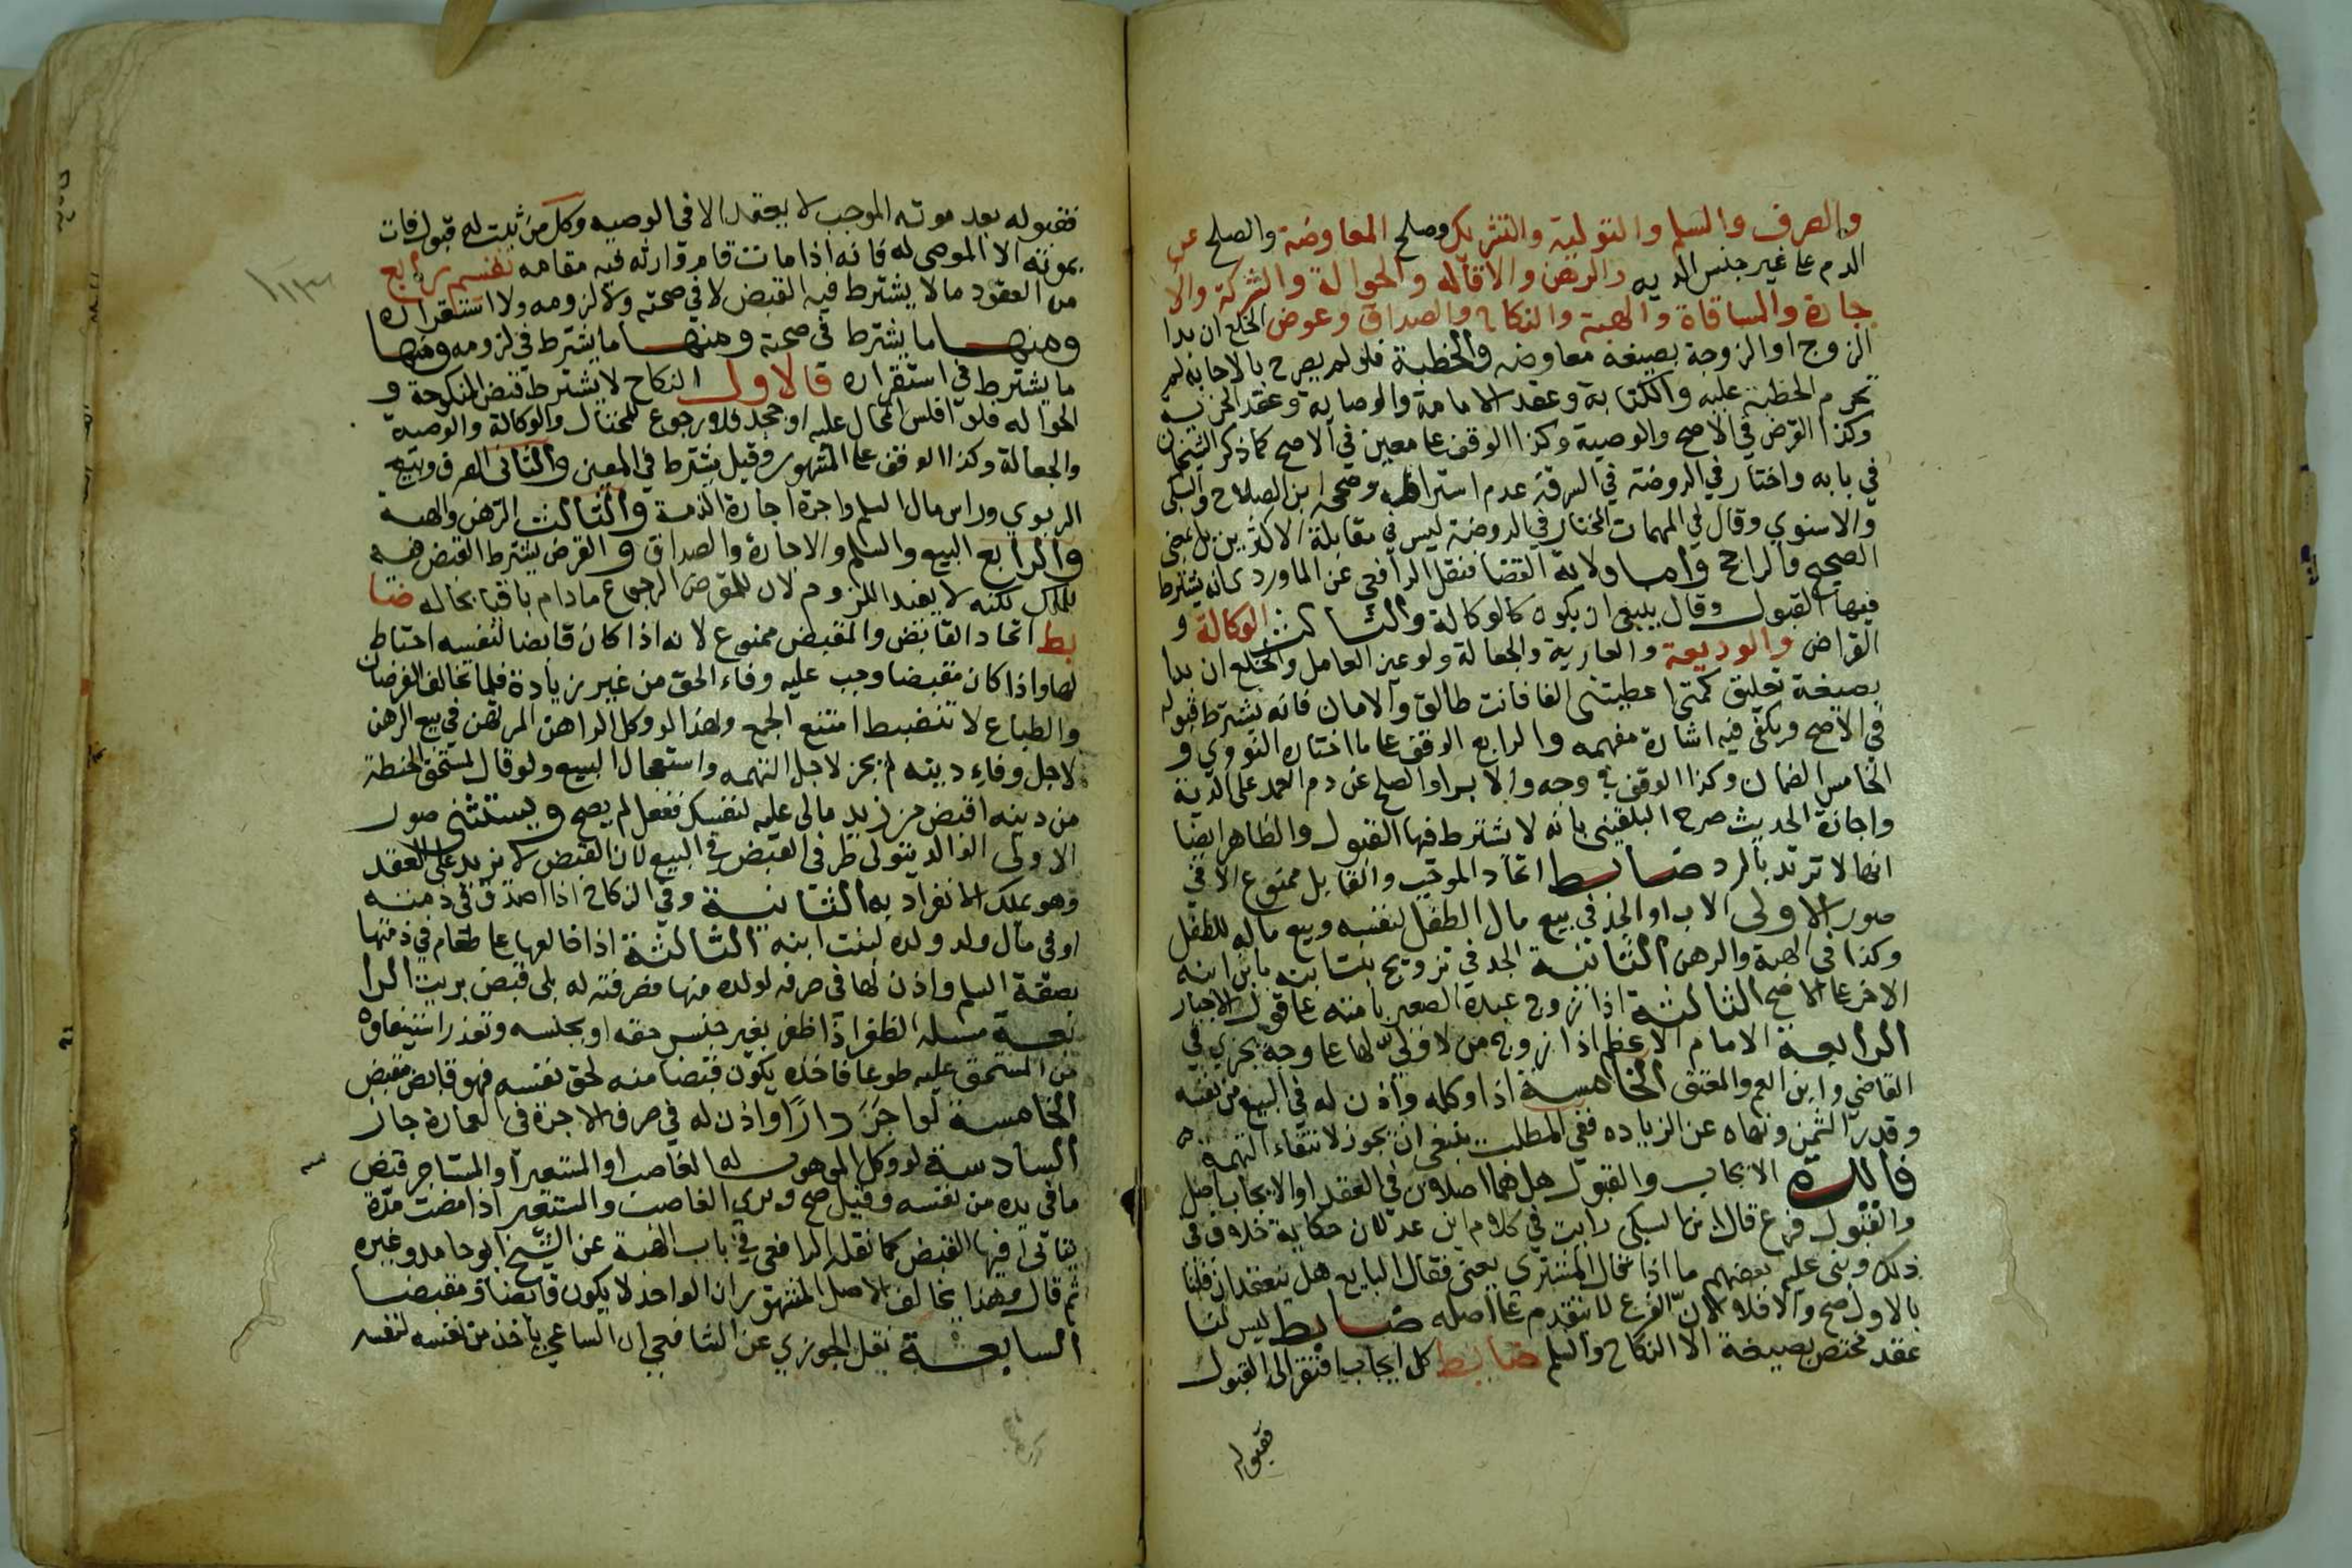 والصرف والسلم والتولية والتشريك وصلح المعاوضة والصلح عن
الدم عا غير جنس الديه والرهن والاقاله والحوالة والشركة والا
جارة والمساقاة والهبة والنكاح والصداق وعوض الخلع ان بدا
الزوج او الزوجة بصيغة معاوضه والخطبة فلو لم يصرح بالاجابه لم
تحرم الخطبة عليه والكتابة وعقد الامامة والوصاية وعقد الجزية
وكذا القرض في الاصح والوصية وكذا الوقف عا معين في الاصح كما ذكر الشيخان
في بابه واختار في الروضة في السرقة عدم اشتراطه وصححه ابن الصلاح والسبكي
والاسنوي وقال في المهمات المختار في الروضة ليس في مقابلة الاكثرين بل بمعنى
الصحيح والراجح واما ولاية القضا فنقل الرافعي عن الماوردي انه يشترط
فيها القبول وقال ينبغي ان يكون كالوكالة والثالث الوكالة و
القراض والوديعة والعارية والجعالة ولو عين العامل والخلع ان بدا
بصيغة تعليق كمتى اعطيتني الفا فانت طالق والامان فانه يشترط قبوله
في الاصح ويكفى فيه اشارة مفهمه والرابع الوقف عا ما اختاره النووي و
الخامس الضمان وكذا الوقف في وجه والابرا والصلح عن دم العمد على الدية
واجازة الحديث صرح البلقيني بانه لا يشترط فيها القبول والظاهر ايضا
انها لا ترتد بالرد ضابط اتحاد الموجب والقابل ممنوع الا في
صور الاولى الاب او الجد في بيع مال الطفل لنفسه وبيع ماله للطفل
وكذا في الهبة والرهن الثانية الجد في تزويج بنت ابنه بابن ابنه
الاخر عا الاصح الثالثة اذا زوج عبده الصغير بامته عا قول الاجبار
الرابعة الامام الاعظم اذا تزوج من لا ولى لها عا وجه يجري في
القاضي وابن العم والمعتق الخامسة اذا وكله واذن له في البيع من نفسه
وقدر الثمن ونهاه عن الزياده ففي المطلب ينبغي ان يجوز لانتفاء التهمة
فائدة الايجاب والقبول هل هما اصلان في العقد او الايجاب اصل
والقبول فرع قال ابن السبكى رايت في كلام ابن عدلان حكاية خلاف في
ذلك وبنى عليه بعضهم ما اذا قال المشتري بعنى فقال البايع هل ينعقد ان قلنا
بالاول صح والا فلا لان الفرع لا يتقدم عا اصله ضابط ليس لنا
عقد يختص بصيغة الا النكاح والسلم ضابط كل ايجاب افتقر الى القبول
فقبوله
فقبوله بعد موته الموجب لا يعقد الا في الوصيه وكل من ثبت له قبول فات
بموته الا الموصى له فانه اذا مات قام وارثه فيه مقامه تقسيم رابع
من العقود ما لا يشترط فيه القبض لا في صحته ولا لزومه ولا استقراره
ومنها ما يشترط في صحته ومنها ما يشترط في لزومه ومنها
ما يشترط في استقراره فالاول النكاح لا يشترط قبض المنكوحة و
الحواله فلو افلس المحال عليه او جحد فلا رجوع للمحتال والوكالة والوصية
والجعالة وكذا الوقف عا المشهور وقيل يشترط في المعين والثانى الصرف وبيع
الربوي وراس مال السلم واجرة اجارة الذمة والثالث الرهن والهبة
والرابع البيع والسلم والاجارة والصداق والقرض يشترط القبض فيه
للملك لكنه لا يفيد اللزوم لان للمقرض الرجوع ما دام باقيا بحاله ضا
بط اتحاد القابض والمقبض ممنوع لانه اذا كان قابضا لنفسه احتاط
لها واذا كان مقبضا وجب عليه وفاء الحق من غير زيادة فلما تخالف الغرضان
والطباع لا تنضبط امتنع الجمع ولهذا لو وكل الراهن المرتهن في بيع الرهن
لاجل وفاء دينه لم يجز لاجل التهمه واستعجال البيع ولو قال لمستحق الحنطة
من دينه اقبض من زيد مالى عليه لنفسك ففعل لم يصح ويستثنى صور
الاولى الوالد يتولى طرفى القبض في البيع لان القبض لا يزيد على العقد
وهو يملك الانفراد به الثانية وفي النكاح اذا اصدق في ذمته
او في مال ولد ولده لبنت ابنه الثالثة اذا خالعها عا طعام في ذمتها
بصفة السلم واذن لها في صرفه لولده منها فصرفته له بلى قبض بريت الرا
بعة مسلة الظفر اذا ظفر بغير جنس حقه او بجنسه وتعذر استيفاؤه
من المستحق عليه طوعا فاخذه يكون قبضا منه لحق نفسه فهو قابض مقبض
الخامسة لو اجر دارا واذن له في صرف الاجرة في العمارة جاز
السادسة لو وكل الموهوب له الغاصب او المستعير او المستاجر قبض
ما في يده من نفسه وقيل صح وبرى الغاصب والمستعير اذا مضت مدة
يتاتى فيها القبض كما نقله الرافعى في باب الهبة عن الشيخ ابو حامد وغيره
ثم قال وهذا يخالف الاصل المشهور ان الواحد لا يكون قابضا ومقبضا
السابعة نقل الجوزي عن الشافعي ان الساعي ياخذ من نفسه لنفسه